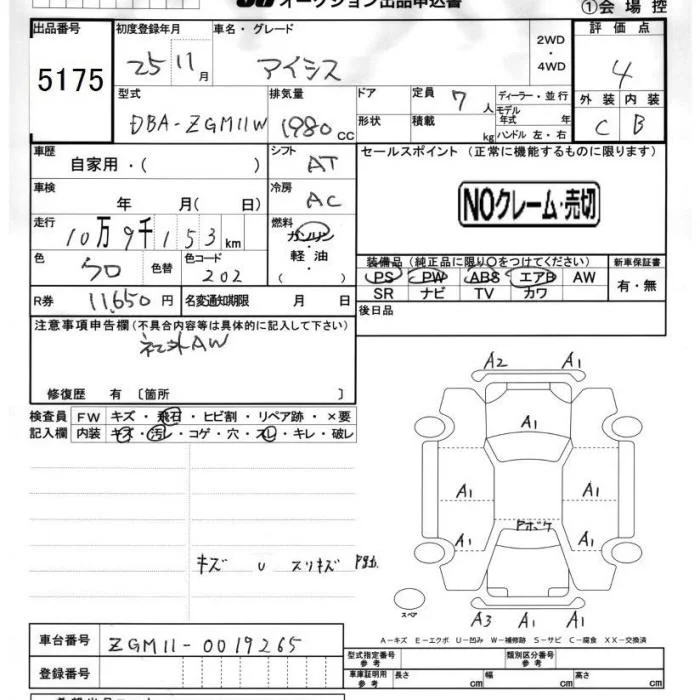 オークション出品申込書
①会場控
出品番号 初度登録年月 車名・グレード 2WD・4WD 評価点
5175 25 11月 アイシス 4
型式 排気量 ドア 定員 7人 ディーラー・並行 外装 内装
DBA-ZGM11W 1980cc 形状 積載 kg モデル年式 年 ハンドル 左・右 C B
車歴 自家用・( ) シフト AT セールスポイント (正常に機能するものに限ります)
車検 年 月( 日) 冷房 AC NOクレーム・売切
走行 10万9千153km 燃料 ガソリン・軽油・( )
色 クロ 色替 色コード 202 装備品(純正品に限り○をつけてください) 新車保証書
PS PW ABS エアB AW 有・無
SR ナビ TV カワ
R券 11,650円 名変通知期限 月 日 後日品
注意事項申告欄(不具合内容等は具体的に記入して下さい)
社外AW
修復歴 有 〔箇所 〕
検査員記入欄 FW キズ・飛石・ヒビ割・リペア跡・×要
内装 キズ・汚レ・コゲ・穴・スレ・キレ・破レ
A2 A1
A1
A1 A1 A1 A1
Pボケ
A1 A1
キズ U スリキズ
スペア
A3 A1 A1
A-キズ E-エクボ U-凹み W-補修跡 S-サビ C-腐食 XX-交換済
車台番号 ZGM11-0019265
型式指定番号 参考 類別区分番号 参考
登録番号 車庫証明用 参考 長さ cm 幅 cm 高さ cm